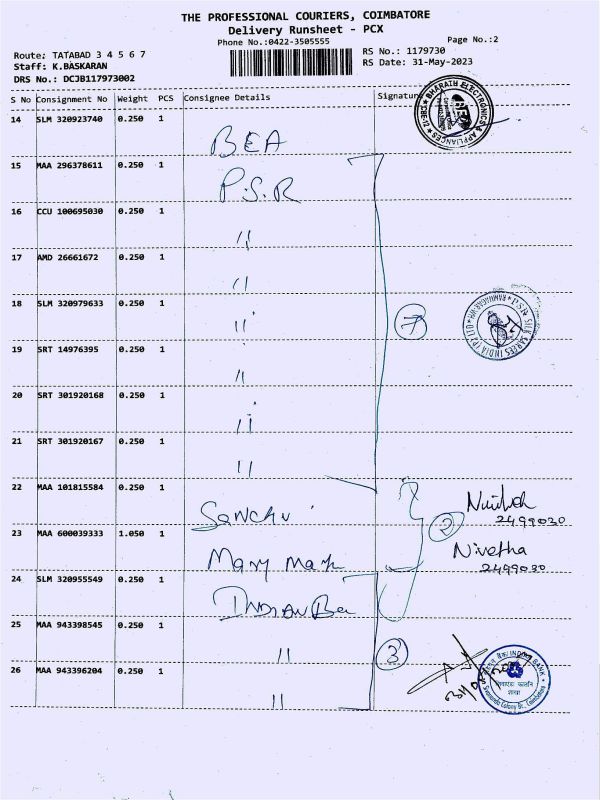 THE PROFESSIONAL COURIERS, COIMBATORE
Delivery Runsheet - PCX
Phone No.:0422-3505555
Page No.:2
Route: TATABAD 3 4 5 6 7
Staff: K.BASKARAN
DRS No.: DCJB117973002
RS No.: 1179730
RS Date: 31-May-2023
S No Consignment No Weight PCS Consignee Details Signature
14 SLM 320923740 0.250 1 BEA
BHARATH ELECTRONICS & APPLIANCES ★ CBE-12 ★
15 MAA 296378611 0.250 1 P.S.R
16 CCU 100695030 0.250 1 "
17 AMD 26661672 0.250 1 "
18 SLM 320979633 0.250 1 "
7
SILK SAREES INDIA (P) LTD
19 SRT 14976395 0.250 1 "
20 SRT 301920168 0.250 1 "
21 SRT 301920167 0.250 1 "
22 MAA 101815584 0.250 1
2
2499030
23 MAA 600039333 1.050 1 Mary
Nivetha
2499030
24 SLM 320955549 0.250 1 INDIAN
25 MAA 943398545 0.250 1 "
3
26 MAA 943396204 0.250 1 "
INDIAN BANK